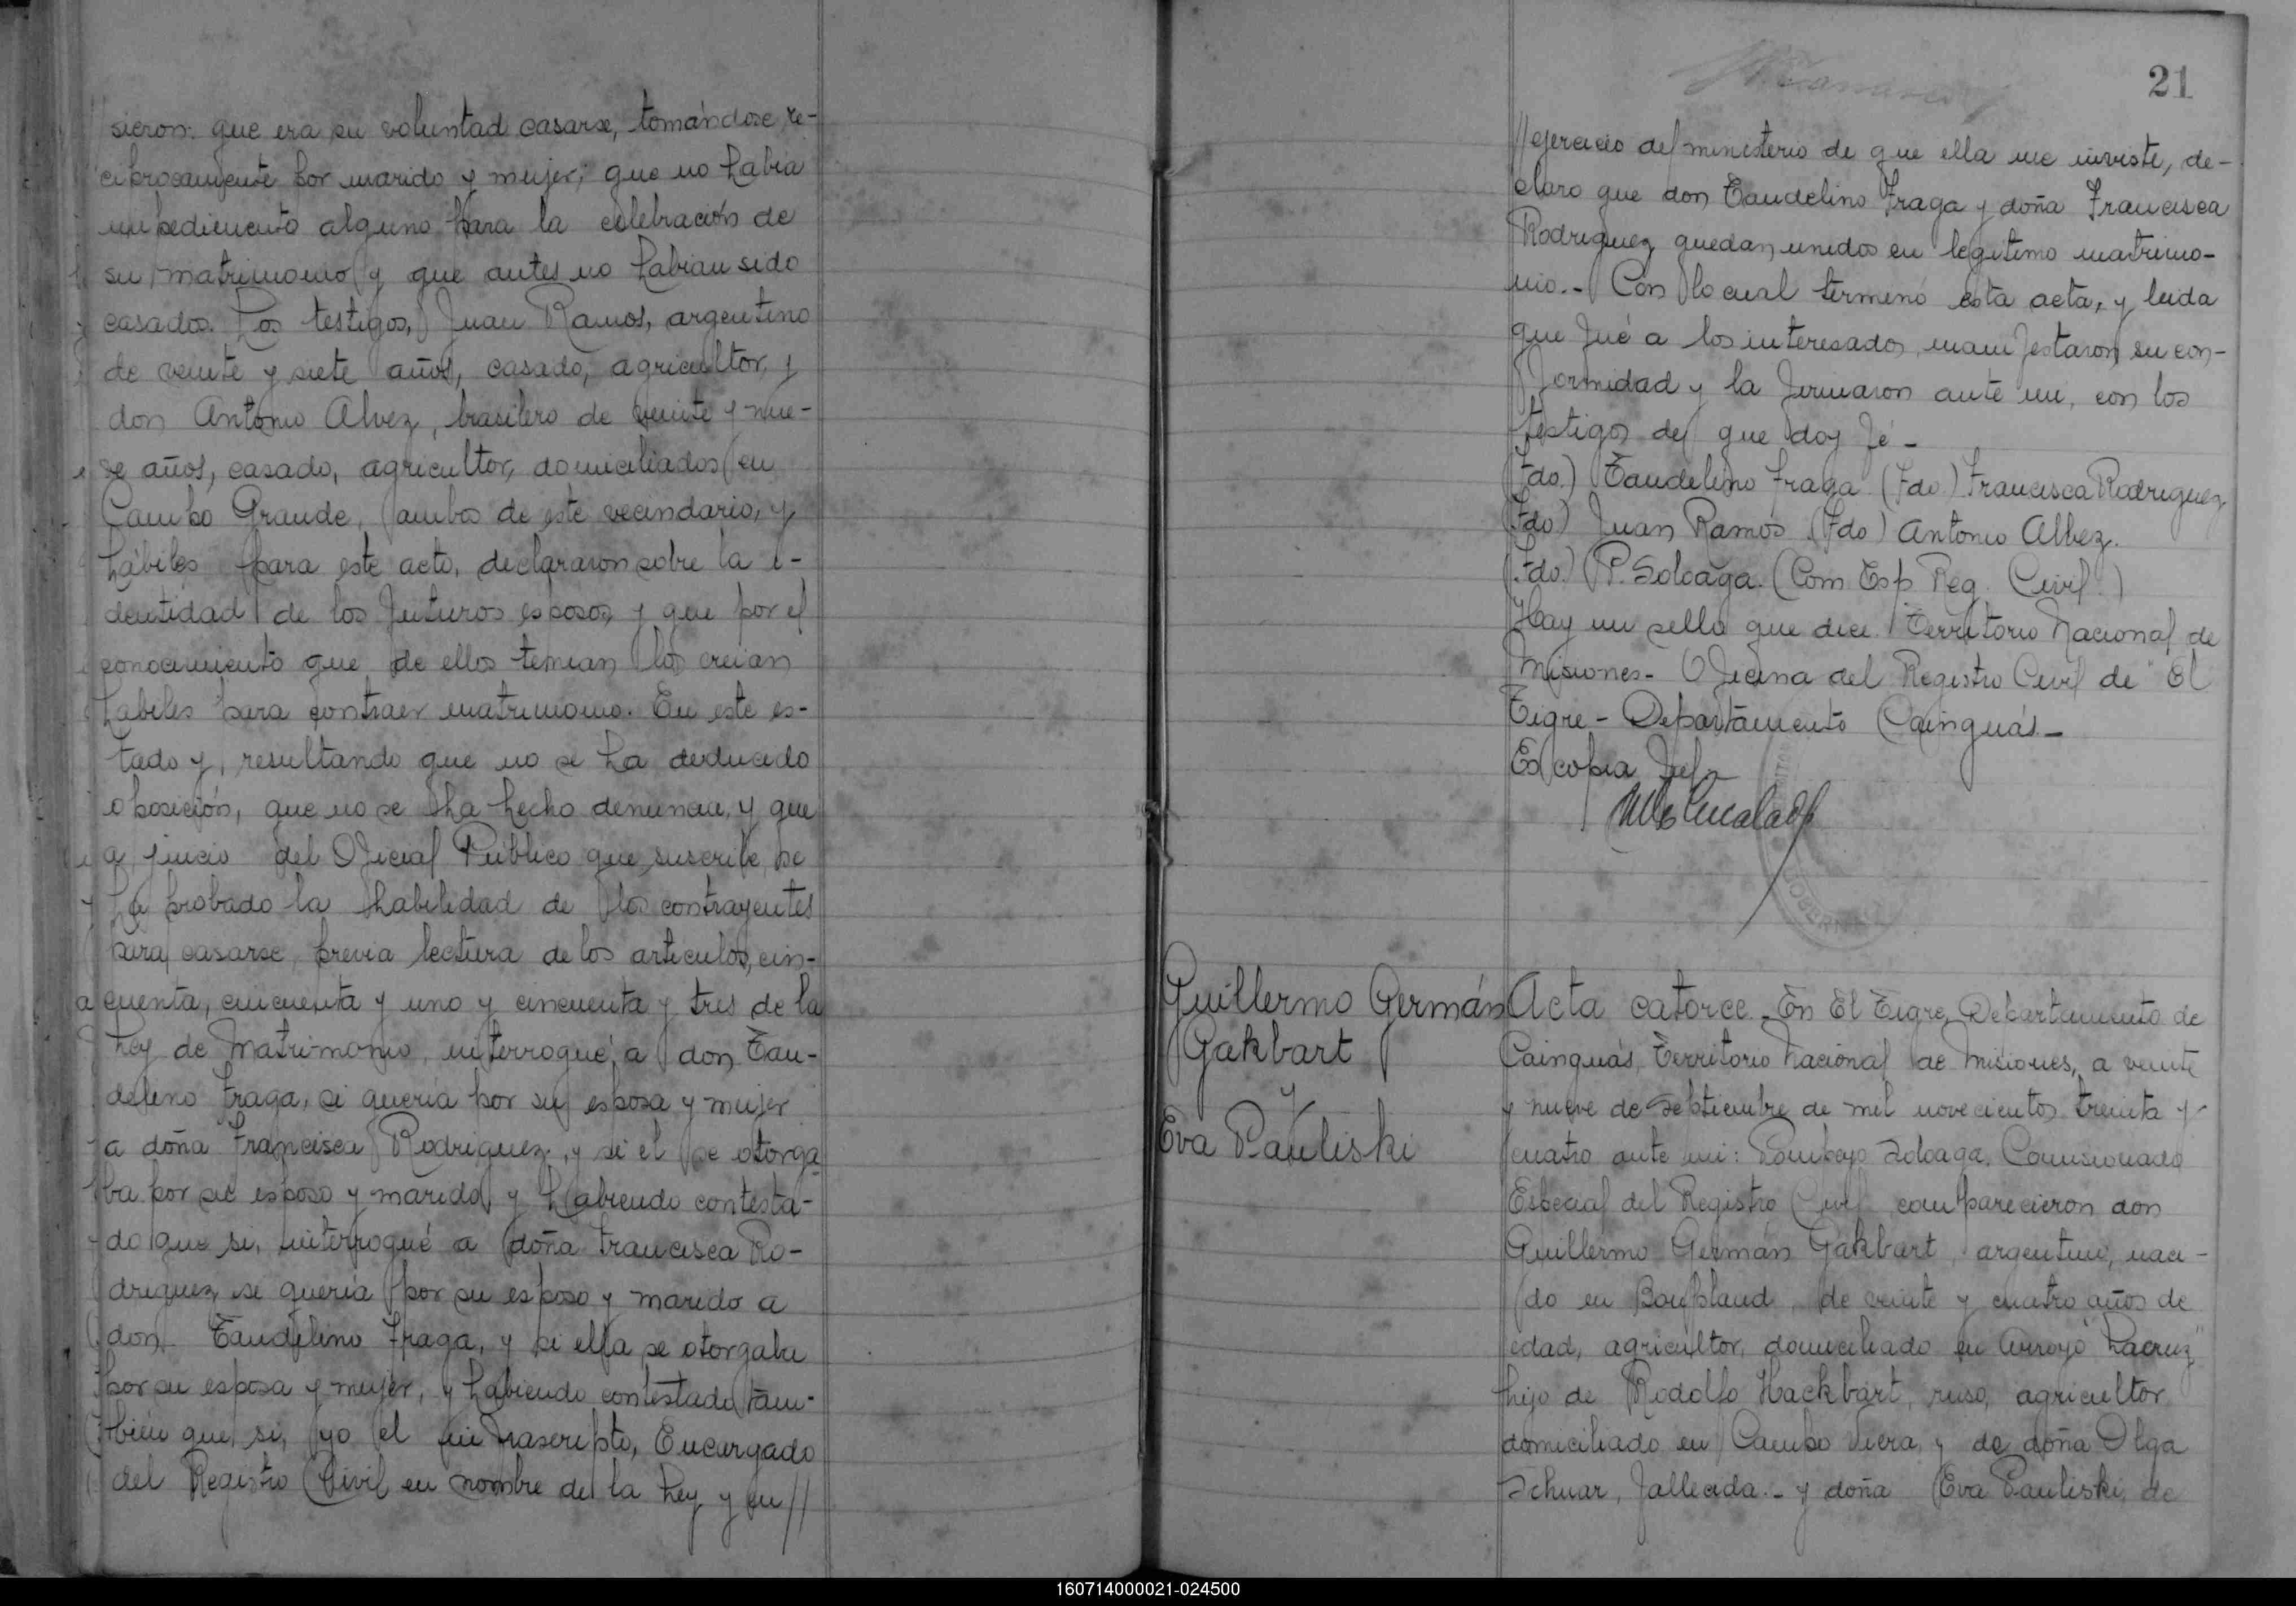 sieron: que era su voluntad casarse, tomándose re-
ciprocamente por marido y mujer; que no habia
impedimento alguno para la celebración de
su matrimonio y que antes no habian sido
casados. Los testigos, Juan Ramos, argentino
de veinte y siete años, casado, agricultor, y
don Antonio Alvez, brasilero de veinte y nue-
ve años, casado, agricultor, domiciliados en
Campo Grande, ambos de este vecindario, y
hábiles para este acto, declararon sobre la i-
dentidad de los futuros esposos y que por el
conocimiento que de ellos tenian los creian
habiles para contraer matrimonio. En este es-
tado y, resultando que no se ha deducido
oposición, que no se ha hecho denuncia, y que
a juicio del Oficial Público que suscribe, se
ha probado la habilidad de los contrayentes
para casarse, previa lectura de los articulos, cin-
cuenta, cincuenta y uno y cincuenta y tres de la
Ley de Matrimonio, interrogué a don Tau-
delino Fraga, si queria por su esposa y mujer
a doña Francisca Rodriguez, y si el se otorga
ba por su esposo y marido, y habiendo contesta-
do que si, interrogué a doña Francisca Ro-
driguez si queria por su esposo y marido a
don Taudelino Fraga, y si ella se otorgaba
por su esposa y mujer, y habiendo contestado tam-
bién que si, yo el infrascripto, Encargado
del Registro Civil en nombre de la Ley y en //
21
// ejercicio del ministerio de que ella me inviste, de-
claro que don Taudelino Fraga y doña Francisca
Rodriguez quedan unidos en legitimo matrimo-
nio.- Con lo cual terminó esta acta, y leida
que fué a los interesados, manifestaron su con-
formidad y la firmaron ante mi, con los
testigos de que doy fé -
(Fdo.) Taudelino Fraga (Fdo) Francisca Rodriguez
(Fdo.) Juan Ramos (Fdo) Antonio Albez.
(Fdo.) P. Soloaga. (Com Esp. Reg. Civil.)
Hay un sello que dice: Territorio Nacional de
Misiones- Oficina del Registro Civil de "El
Tigre - Departamento Cainguás -
Es copia fiel
Guillermo Germán
Gakbart
y
Eva Pauliski
Acta catorce - En El Tigre, Departamento de
Cainguás, Territorio Nacional de Misiones, a veinte
y nueve de Septiembre de mil novecientos treinta y
cuatro ante mi: Pompeyo Soloaga, Comisionado
Especial del Registro Civil comparecieron don
Guillermo Germán Gakbart, argentino, naci-
do en Bonpland, de veinte y cuatro años de
edad, agricultor, domiciliado en Arroyo "Lacruz"
hijo de Rodolfo Hackbart, ruso, agricultor
domiciliado en Campo Viera, y de doña Olga
Schuar, fallecida.- y doña Eva Pauliski, de
160714000021-024500